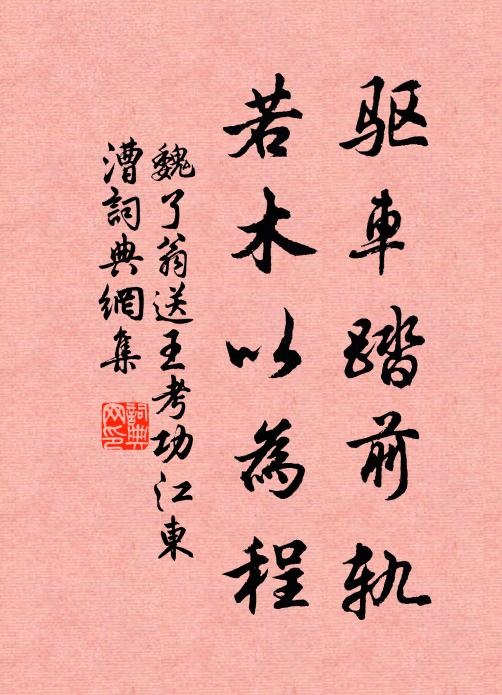 驱車踏前軌
若木以為程
魏了翁送王考功江東
漕詞典網集
詞典
网印